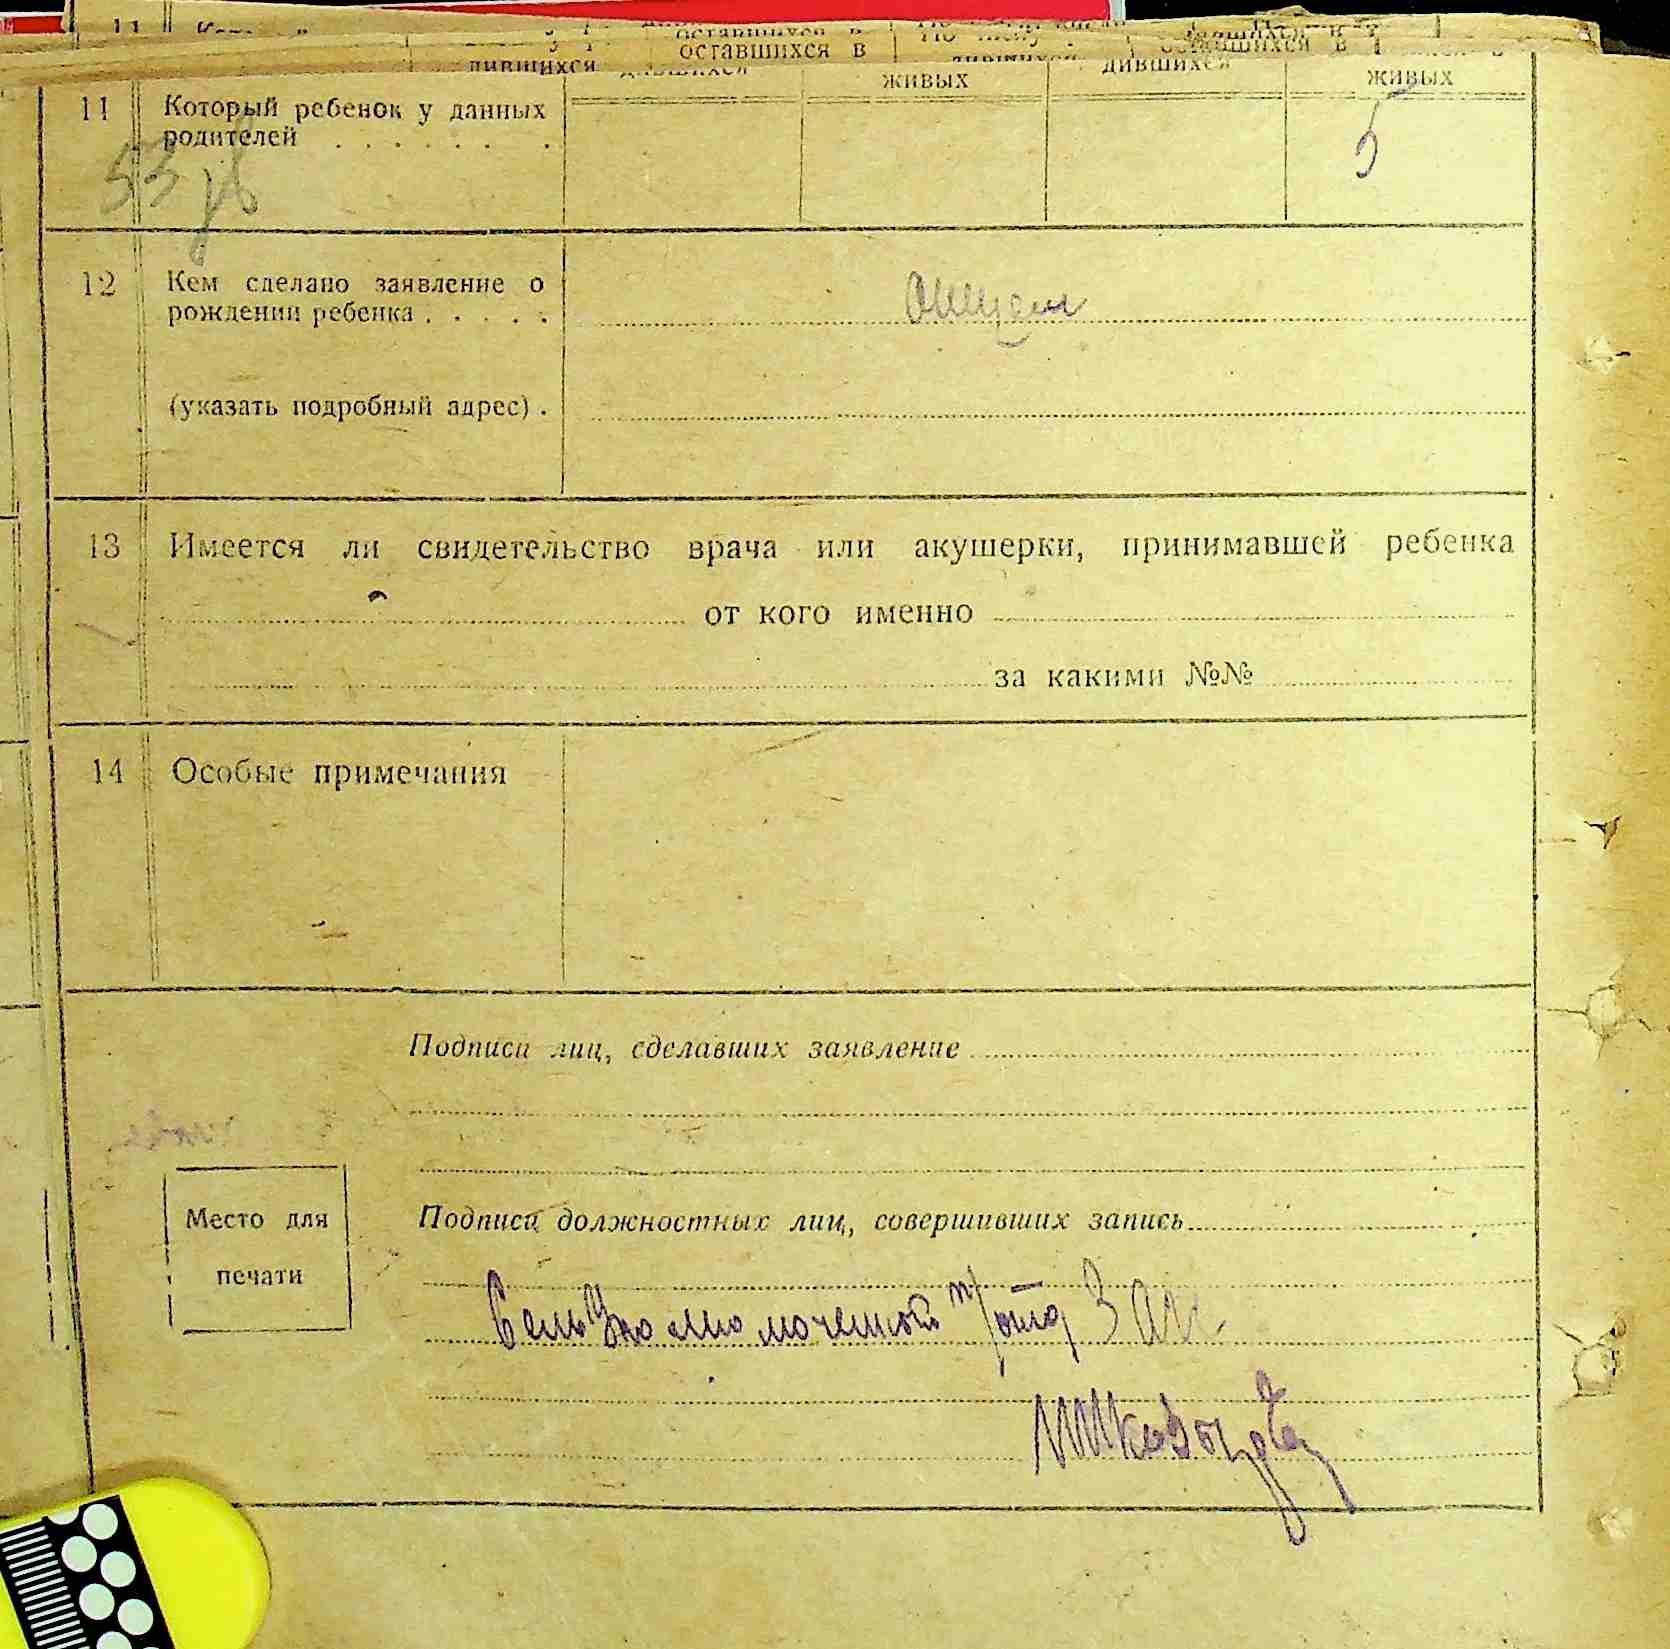 оставшихся в
дившихся
живых
дившихся
живых
11 Который ребенок у данных
родителей . . . . . . .
5
53
12 Кем сделано заявление о
рождении ребенка . . . . .
отцем
(указать подробный адрес) .
13 Имеется ли свидетельство врача или акушерки, принимавшей ребенка
от кого именно
за какими №№
14 Особые примечания
Подписи лиц, сделавших заявление
Место для
печати
Подписи должностных лиц, совершивших запись
Сель Уполномоченной п/отд ЗАГС